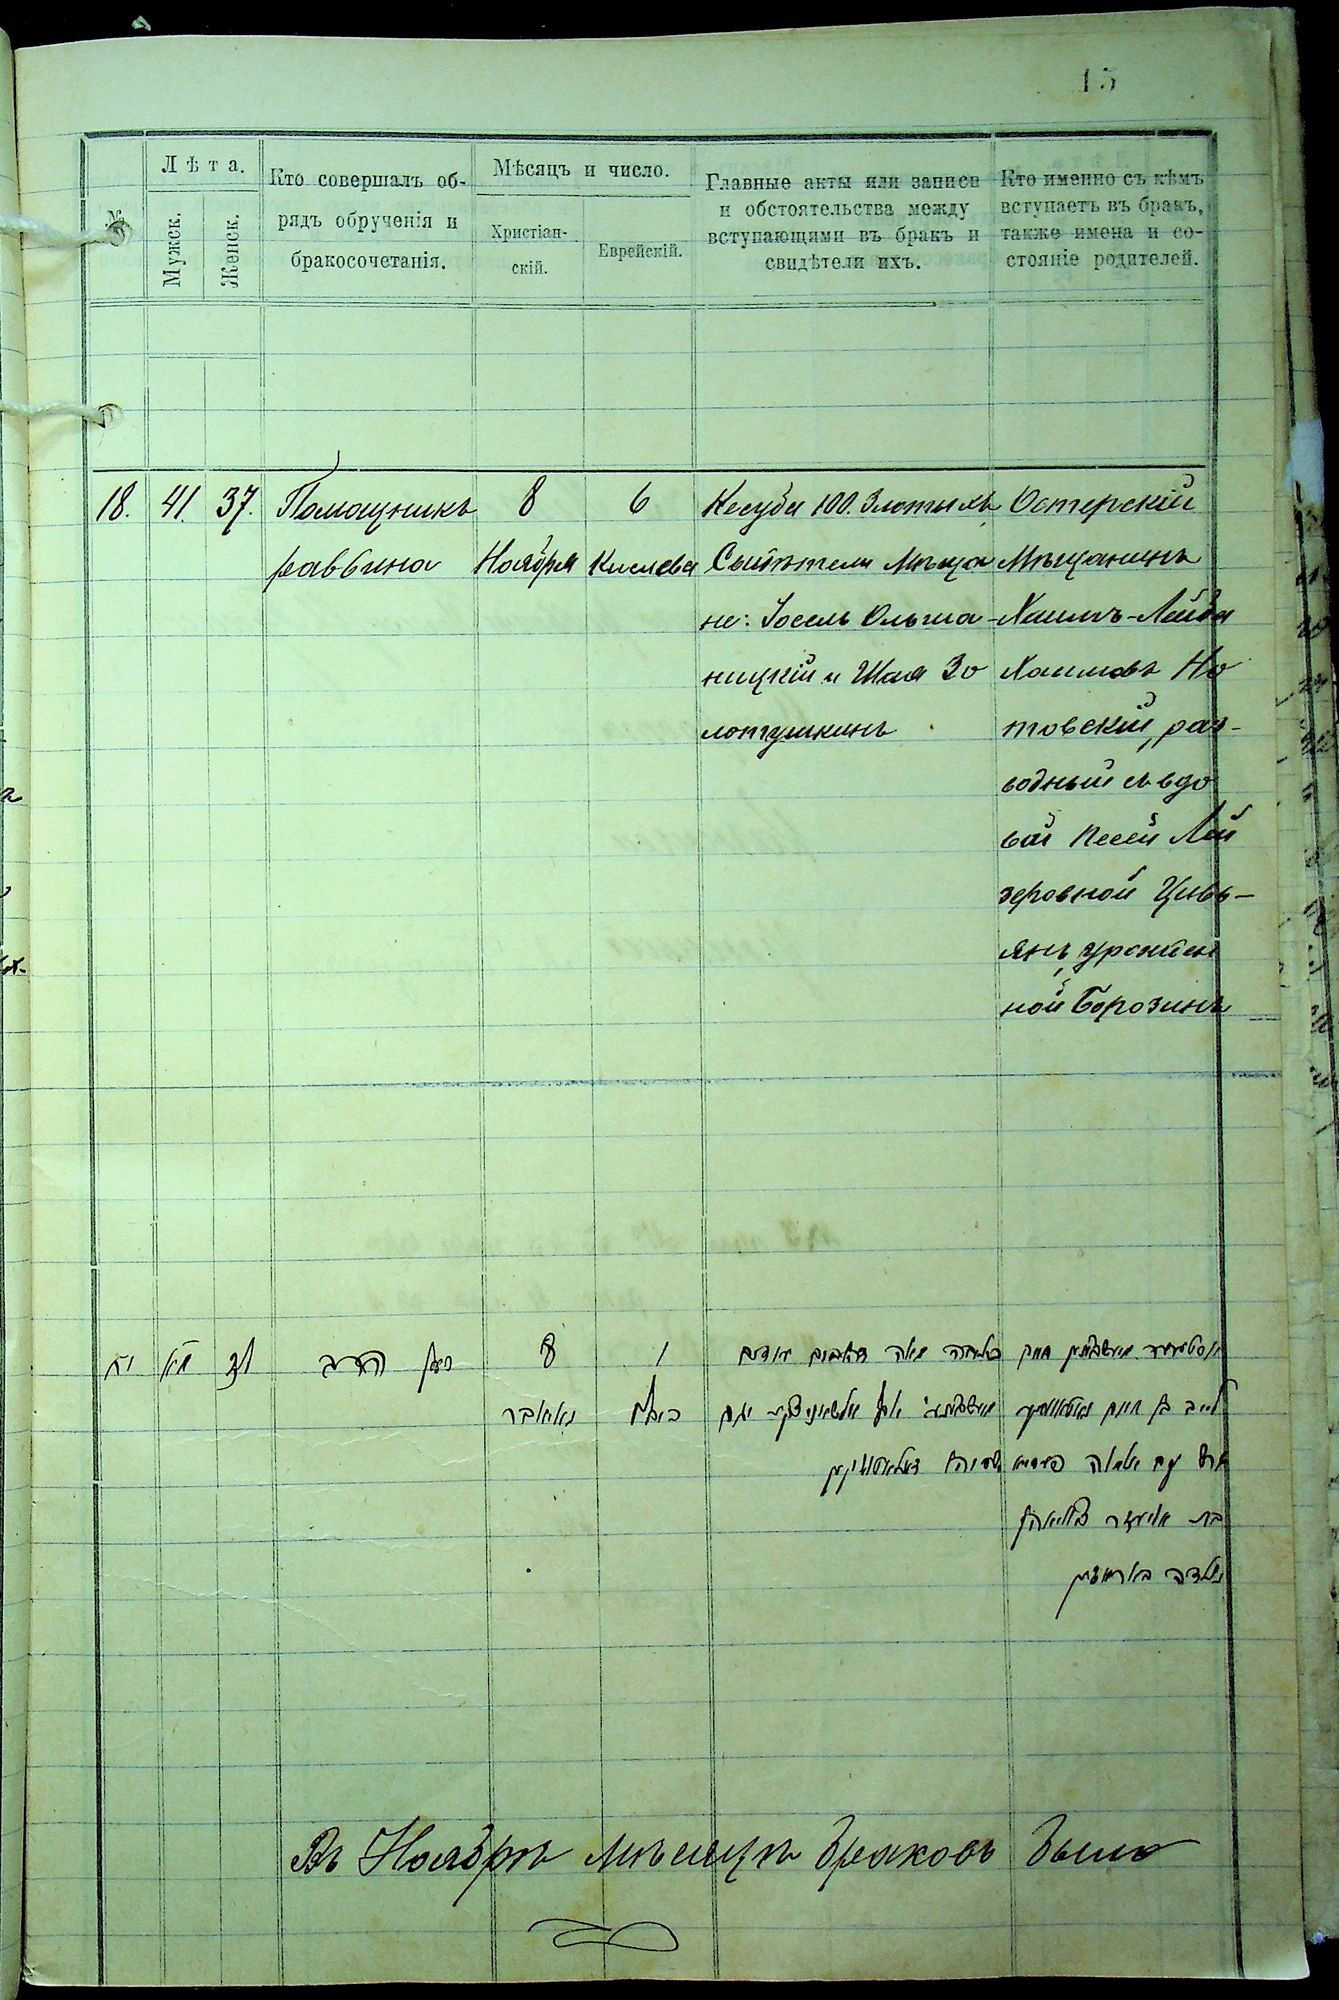 15
№
Лѣта.
Мужск.
Женск.
Кто совершалъ об-
рядъ обрученія и
бракосочетанія.
Мѣсяцъ и число.
Христіан-
скій.
Еврейскій.
Главные акты или записи
и обстоятельства между
вступающими въ бракъ и
свидѣтели ихъ.
Кто именно съ кѣмъ
вступаетъ въ бракъ,
также имена и со-
стояніе родителей.
18.
41.
37.
Помощникъ
раввина
8
Ноября
6
Кислева
Кесуба 100. Злотыхъ
Свидѣтели Мѣща
не: Іосель Ольша-
ницкій и Шая Зо
лотушкинъ
Остерскій
Мѣщанинъ
Хаимъ-Лейба
Хаимовъ Но
товскій, раз-
водный съ вдо
вой Песей Лей
зеровной Цивь-
янъ, урожден
ной Борозинъ
יח
מא
לז
סגן הרב
8
נאיאבר
ו
כסלו
כתובה מאה זהובים
לייב בן חיים
גרוש עם אלמנה פעסיא
בת אליעזר
נולדה
Въ Ноябрѣ мѣсяцѣ браковъ было